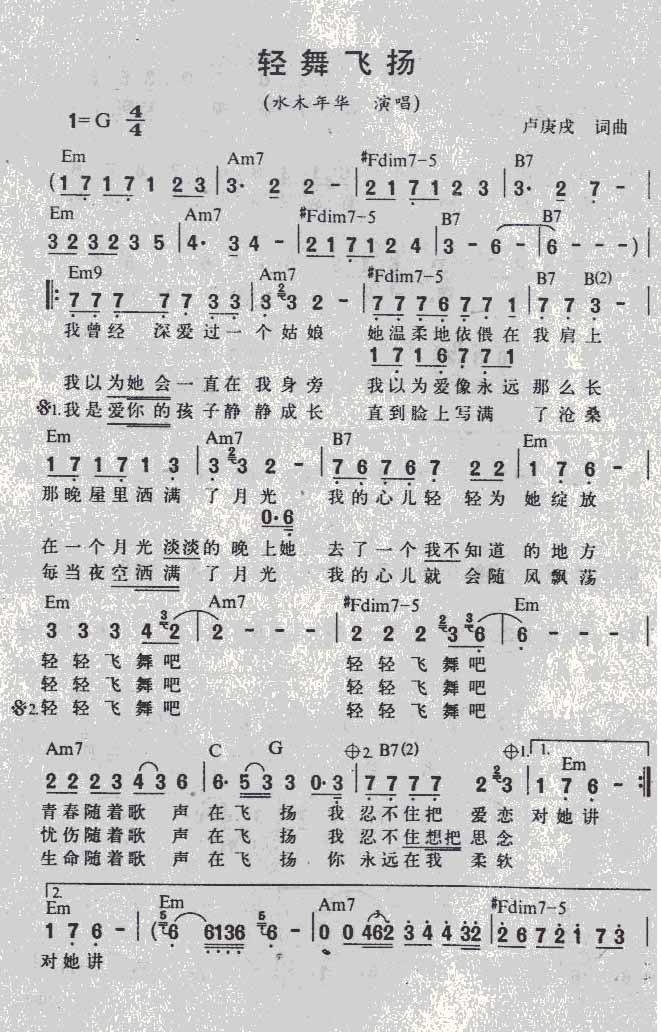 轻舞飞扬
(水木年华 演唱)
1=G 4/4
卢庚戌 词曲
Em Am7 #Fdim7-5 B7
(1 7 1 7 1 2 3 | 3· 2 2 - | 2 1 7 1 2 3 | 3· 2 7 - |
Em Am7 #Fdim7-5 B7 B7
3 2 3 2 3 5 | 4· 3 4 - | 2 1 7 1 2 4 | 3 - 6 - | 6 - - - )|
Em9 Am7 #Fdim7-5 B7 B(2)
‖: 7 7 7 7 7 3 3 | 3 2 3 2 - | 7 7 7 6 7 7 1 | 7 7 3 - |
我曾经 深爱过一个姑娘 她温柔地依偎在我肩上
1 7 1 6 7 7 1
我以为她会一直在我身旁 我以为爱像永远那么长
𝄋1.我是爱你的孩子静静成长 直到脸上写满 了沧桑
Em Am7 B7 Em
1 7 1 7 1 3 | 3 2 3 2 - | 7 6 7 6 7 2 2 | 1 7 6 - |
那晚屋里洒满 了月光 我的心儿轻 轻为她绽放
0·6
在一个月光淡淡的晚上她 去了一个我不知道的地方
每当夜空洒满 了月光 我的心儿就 会随风飘荡
Em Am7 #Fdim7-5 Em
3 3 3 4 3 2 | 2 - - - | 2 2 2 2 3 3 6 | 6 - - - |
轻轻飞舞吧 轻轻飞舞吧
轻轻飞舞吧 轻轻飞舞吧
𝄋2.轻轻飞舞吧 轻轻飞舞吧
Am7 C G 𝄌2. B7(2) 𝄌1. 1. Em
2 2 2 3 4 3 6 | 6· 5 3 3 0·3 | 7 7 7 7 2 2 3 | 1 7 6 - :‖
青春随着歌 声在飞 扬 我忍不住把 爱恋对她讲
忧伤随着歌 声在飞 扬 我忍不住想把思念
生命随着歌 声在飞 扬 你永远在我 柔软
2.
Em Em Am7 #Fdim7-5
1 7 6 - | (5 6 6136 5 6 - | 0 0 462 3 4 4 32 | 2 6 7 2 1 7 3 |
对她讲